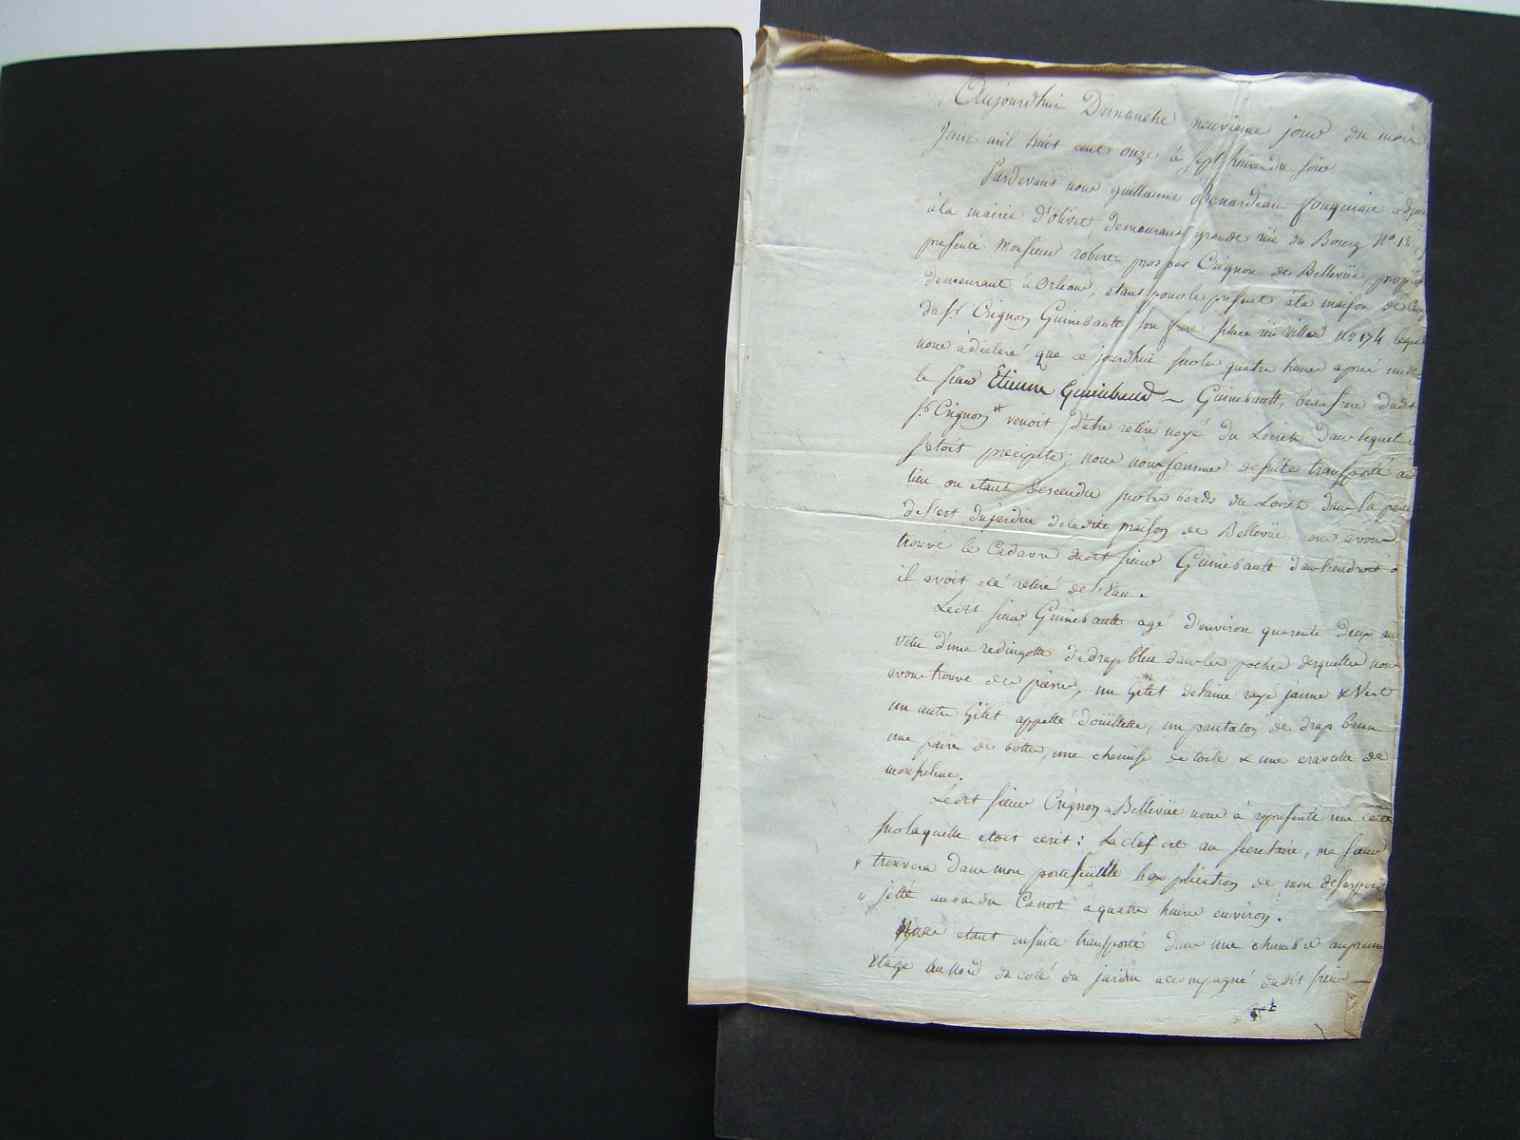 Aujourdhui Dimanche neuvieme jour du mois
Juin mil huit cent onze à sept heures du soir
Pardevant nous guillaume Benardeau fouqueau adjoin
à la mairie d'olivet demeurant grande rüe du Bourg N° 18
presenté Monsieur robert prosper Crignon de Bellevüe prop
demeurant à Orleans, etant pour le present à la maison de
du sr Crignon Guinebault son frere place N° 174 leque
nous à declaré que ce jourdhui sur les quatre heures apres midi
le sieur Etienne Guinebaud Guinebault, beau frere dudit
sr Crignon venoit d'etre retiré noyé du Loiret dans lequel
setoit precipité; nous nous sommes desuite transporté au
lieu ou etant descendu sur les bords du Loiret dans la par
de l'est du jardin de la dite maison de Bellevüe ou avons
trouvé le Cadavre dudit sieur Guinebault dans l'endroit o
il avoit eté retiré de l'Eau.
Ledit sieur Guinebault agé d'environ quarente deux
vetu d'une redingotte de drap bleu dans les poches desquelles nous
avons trouvé des pierres, un gilet de laine rayé jaune & Vert
un autre Gilet appellé doüillette, un pantalon de drap brun
une paire de bottes, une chemise de toile & une cravatte de
mousseline.
Ledit sieur Crignon Bellevüe nous à representé une carte
sur laquelle etoit ecrit: La clef est au secretaire, ma soeur
trouvera dans mon portefeuille l'explication de mon desespoir
jetté au canot a quatre heures environ.
Nous etant ensuite transporté dans une chambre au premier
etage au nord du coté du jardin accompagné dudit sieur